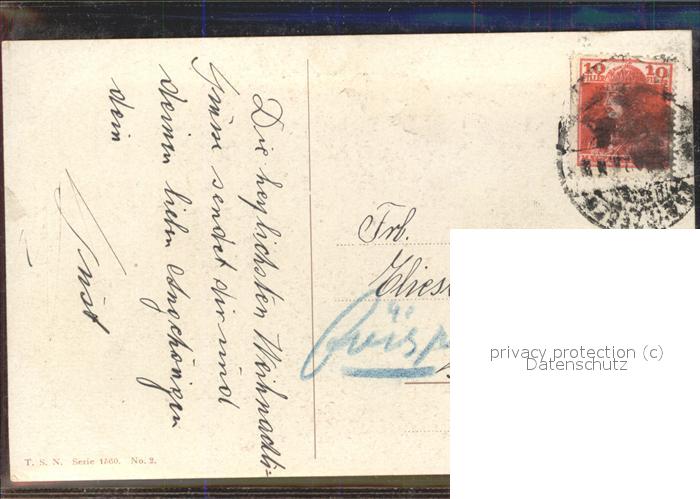 Die herzlichsten Weihnachts-
Grüsse sendet dir und
deinen lieben Angehörigen
dein
Ernst
T. S. N. Serie 1560. No. 2.
10 10
Frl.
privacy protection (c)
Datenschutz